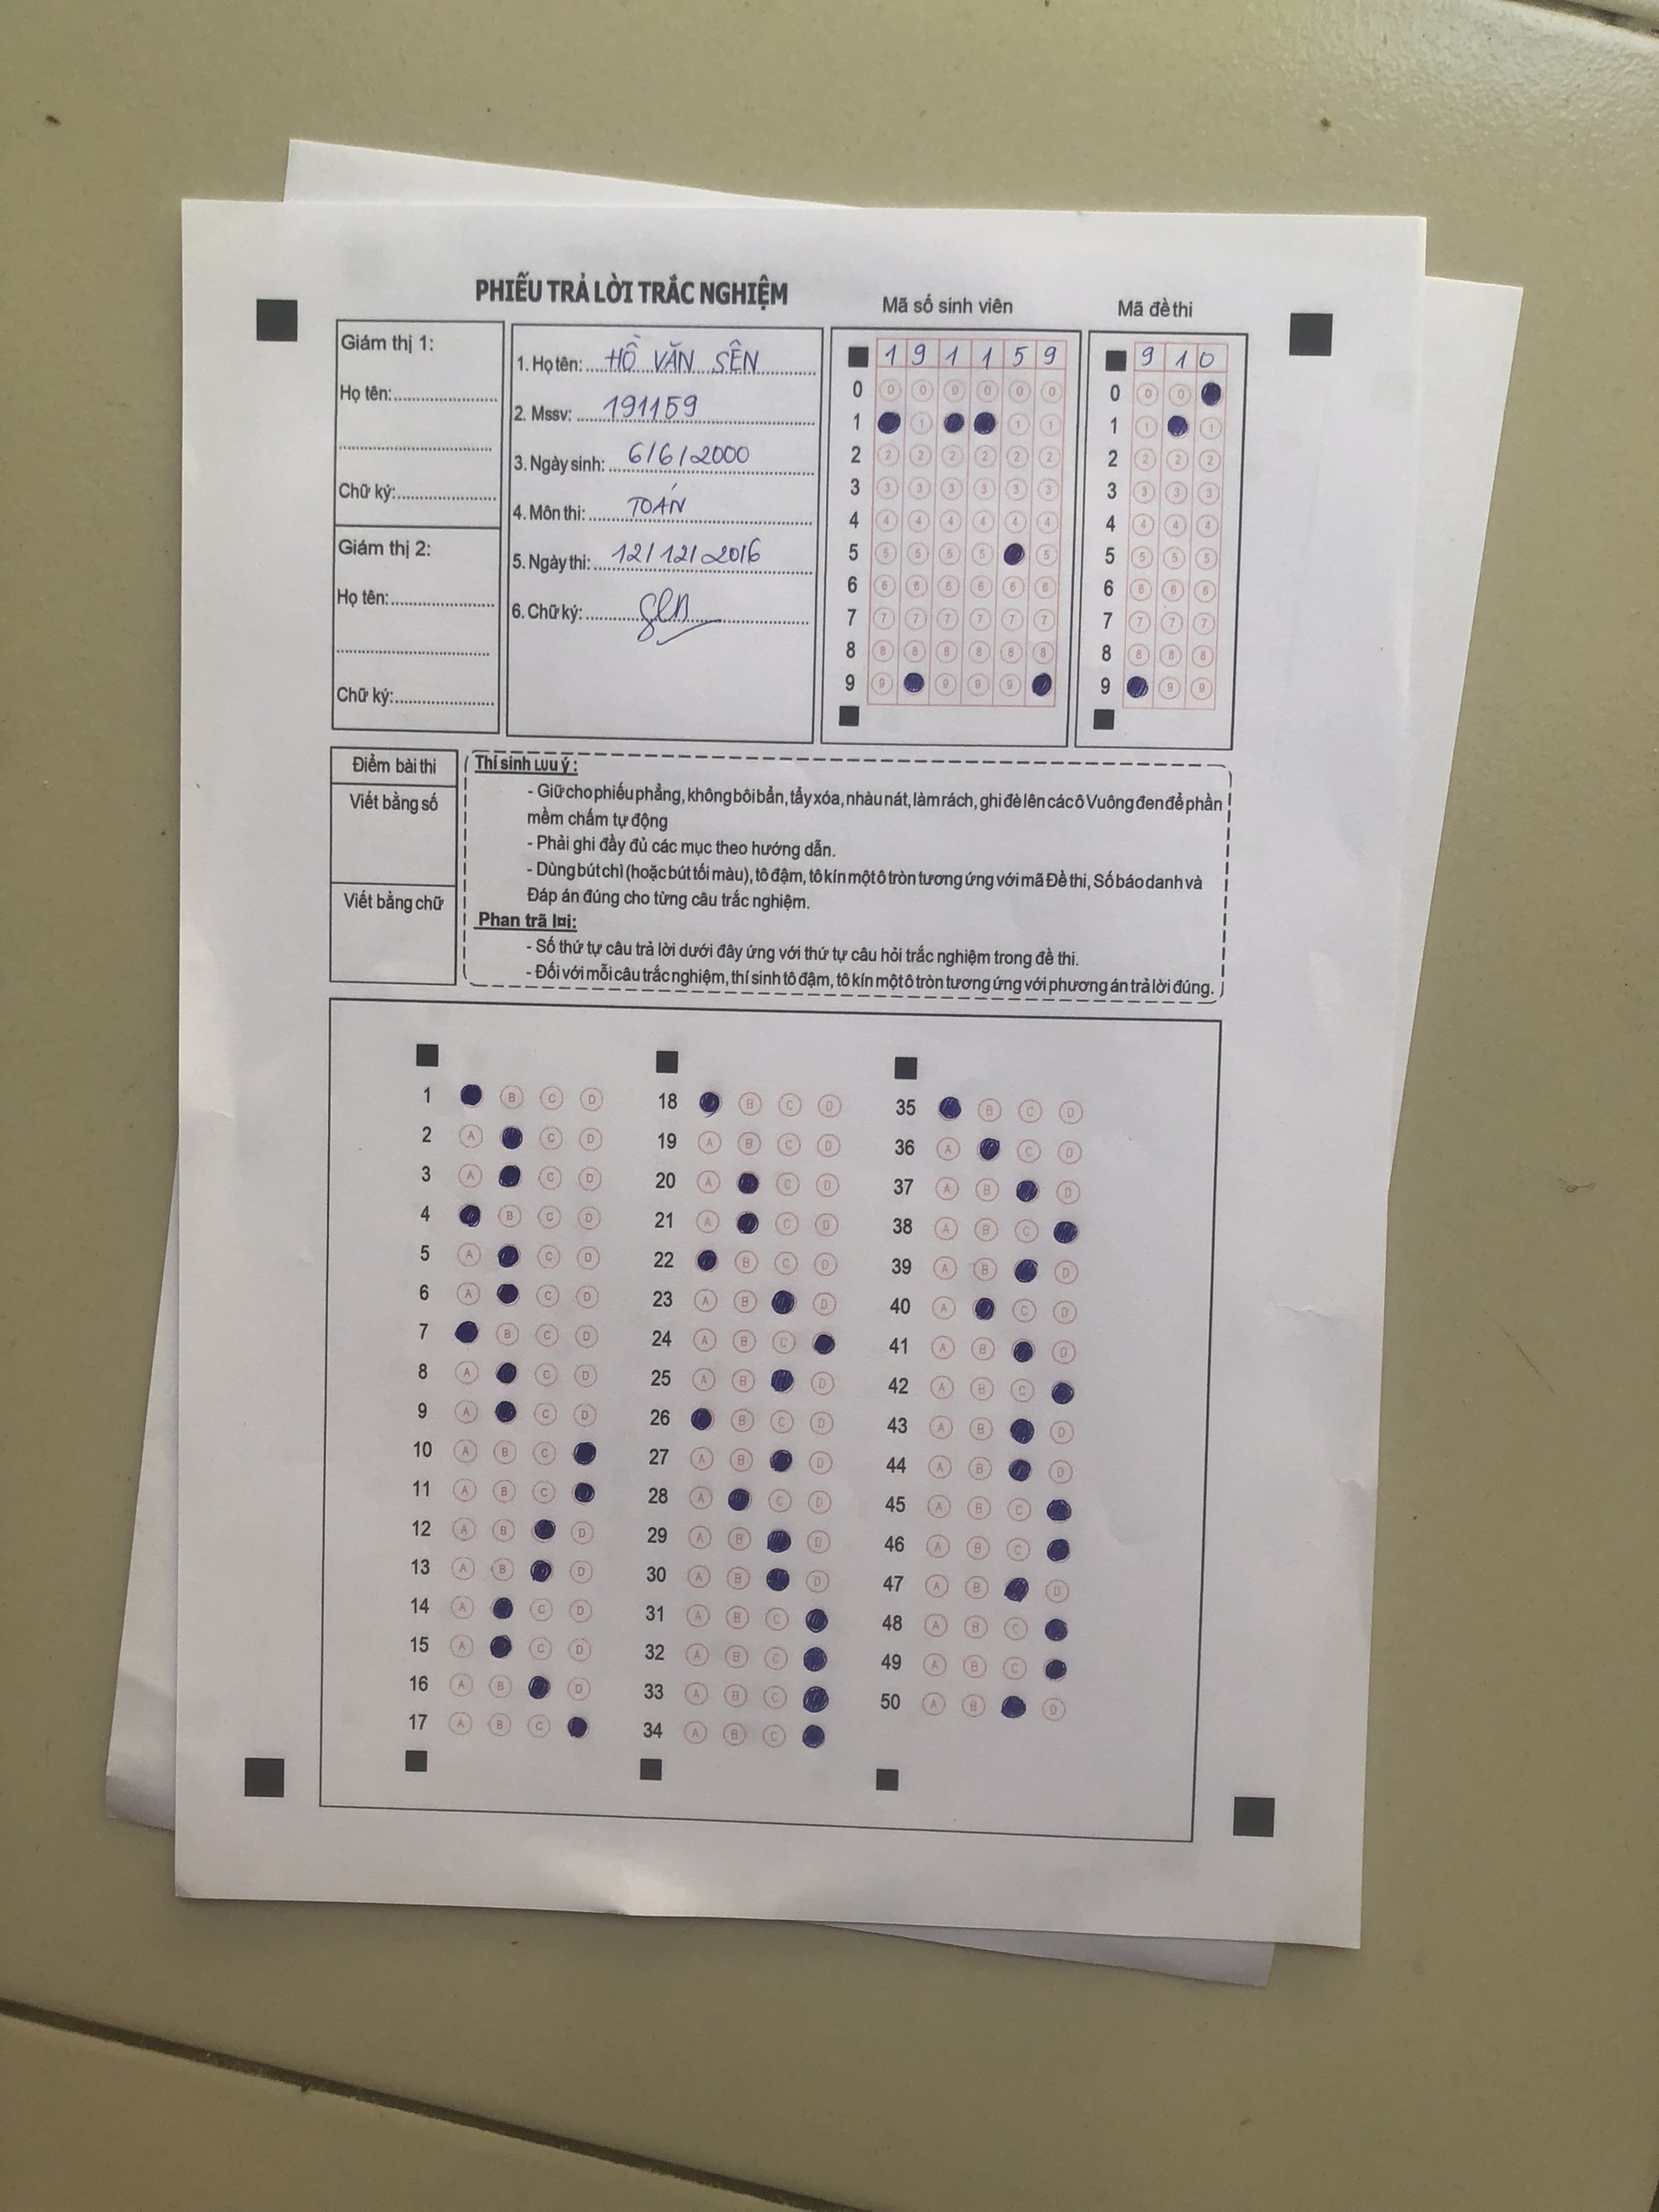 PHIẾU TRẢ LỜI TRẮC NGHIỆM
Mã số sinh viên
Mã đề thi
Giám thị 1:
Họ tên:
Chữ ký:
Giám thị 2:
Họ tên:
Chữ ký:
1. Họ tên: HỒ VĂN SÊN
2. Mssv: 191159
3. Ngày sinh: 6/6/2000
4. Môn thi: TOÁN
5. Ngày thi: 12/12/2016
6. Chữ ký:
1 9 1 1 5 9
0 0 0 0 0 0 0
1 1 1 1
2 2 2 2 2 2 2
3 3 3 3 3 3 3
4 4 4 4 4 4 4
5 5 5 5 5 5
6 6 6 6 6 6 6
7 7 7 7 7 7 7
8 8 8 8 8 8 8
9 9 9 9 9
9 1 0
0 0 0
1 1 1
2 2 2 2
3 3 3 3
4 4 4 4
5 5 5 5
6 6 6 6
7 7 7 7
8 8 8 8
9 9 9
Điểm bài thi
Viết bằng số
Viết bằng chữ
Thí sinh Lưu ý:
- Giữ cho phiếu phẳng, không bôi bẩn, tẩy xóa, nhàu nát, làm rách, ghi đè lên các ô Vuông đen để phần
mềm chấm tự động
- Phải ghi đầy đủ các mục theo hướng dẫn.
- Dùng bút chì (hoặc bút tối màu), tô đậm, tô kín một ô tròn tương ứng với mã Đề thi, Số báo danh và
Đáp án đúng cho từng câu trắc nghiệm.
Phan trã l¤i:
- Số thứ tự câu trả lời dưới đây ứng với thứ tự câu hỏi trắc nghiệm trong đề thi.
- Đối với mỗi câu trắc nghiệm, thí sinh tô đậm, tô kín một ô tròn tương ứng với phương án trả lời đúng.
1 B C D
2 A C D
3 A C D
4 B C D
5 A C D
6 A C D
7 B C D
8 A C D
9 A C D
10 A B C
11 A B C
12 A B D
13 A B D
14 A C D
15 A C D
16 A B D
17 A B C
18 B C D
19 A B C D
20 A C D
21 A C D
22 B C D
23 A B D
24 A B C
25 A B D
26 B C D
27 A B D
28 A C D
29 A B D
30 A B D
31 A B C
32 A B C
33 A B C
34 A B C
35 B C D
36 A C D
37 A B D
38 A B C
39 A B D
40 A C D
41 A B D
42 A B C
43 A B D
44 A B D
45 A B C
46 A B C
47 A B D
48 A B C
49 A B C
50 A B D